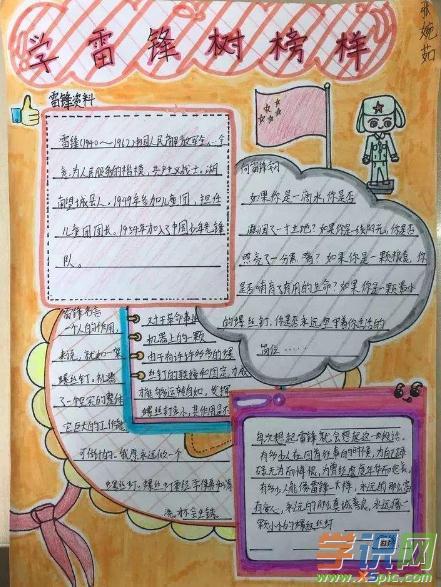 学雷锋树榜样
张婉茹
雷锋资料
雷锋(1940～1962)中国人民解放军
为人民服务的楷模,共产主义战士,湖
南望城县人。1949年参加儿童团,担任
儿童团团长。1954年加入了中国少年先锋
队。
向雷锋
如果你是一滴水,你是否
滋润了一寸土地?如果你是一线阳光,你是否
照亮了一分黑暗?如果你是一颗粮食,你
是否哺育了有用的生命?如果你是一颗最小
的螺丝钉,你是否永远坚守着你生活的
岗位……
雷锋名言
一个人的作用,
对于革命事业
来说,就如一架
机器上的一颗
螺丝钉。机器
由于有许许多多的螺
丝钉的联接和固定,才
了一个坚实的整体,
能够运转自如,发挥
它巨大的工作能
螺丝钉虽小,其作用是不
可估计的。我愿永远做一个
螺丝钉。螺丝钉要经常保养和清
每次想起雷锋就会想起这一段话。
有多少人
有多少人能像雷锋一样,永远的那么
永远的那么真诚善良,永远像一
颗小小的螺丝钉
学识网
www.XSpic.com